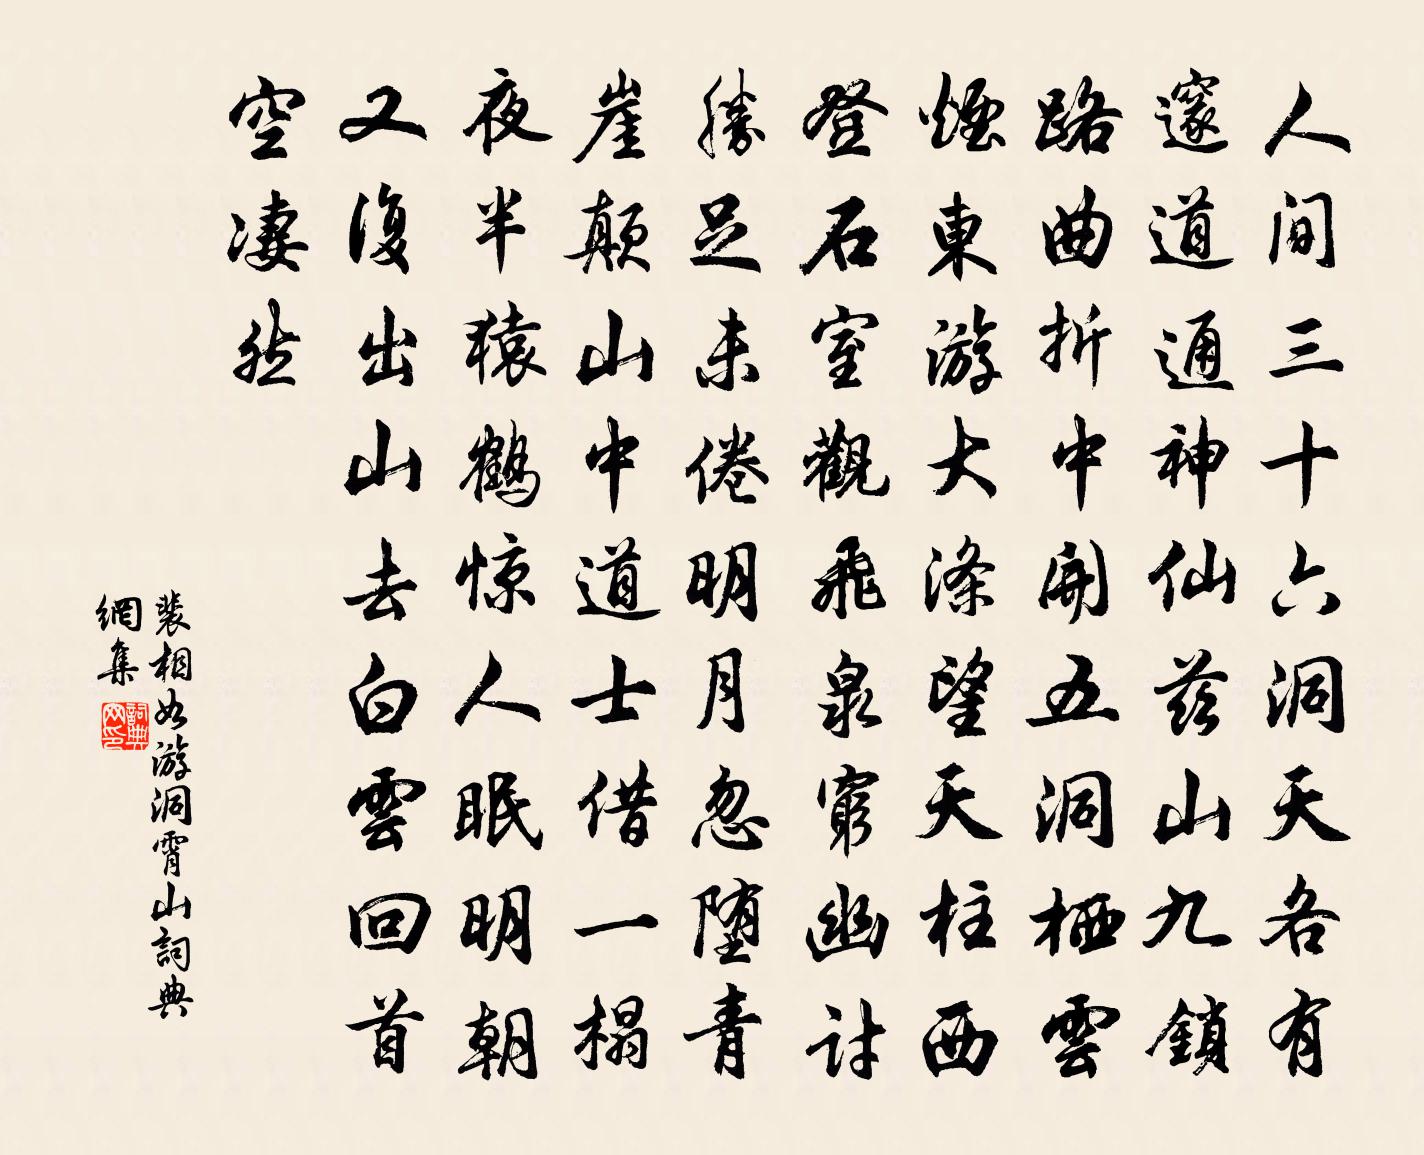 人间三十六洞天各有
邃道通神仙兹山九鎖
路曲折中開五洞栖雲
煙東游大滌望天柱西
登石室觀飛泉窮幽討
勝足未倦明月忽堕青
崖顛山中道士借一榻
夜半猿鶴惊人眠明朝
又復出山去白雲回首
空凄然
裴相如游洞霄山詞典
網集
詞典
网印